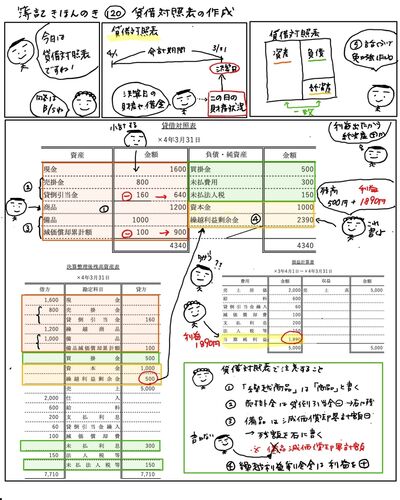 簿記きほんのき 120 貸借対照表の作成
今日は
貸借対照表
ですね!
貸借対照表
4/1
会計期間
3/31
決算日
決算日の
財産や借金
この日の
財政状況
資産
負債
純資産
一致
貸借対照表
×4年3月31日
資産
金額
負債・純資産
金額
現金
1600
買掛金
500
売掛金
800
未払費用
300
貸倒引当金
160
640
未払法人税
150
商品
1200
資本金
1000
備品
1000
繰越利益剰余金
2390
減価償却累計額
100
900
4340
4340
500円+1890円
決算整理後残高試算表
×4年3月31日
借方
勘定科目
貸方
1,600
現金
800
売掛金
貸倒引当金
160
1,200
繰越商品
1,000
備品
備品減価償却累計額
100
買掛金
500
資本金
1,000
繰越利益剰余金
500
売上
5,000
2,000
仕入
600
給料
200
支払利息
60
貸倒引当金繰入
100
減価償却費
未払利息
300
150
法人税等
未払法人税等
150
7,710
7,710
損益計算書
×3年4月1日~×4年3月31日
費用
金額
収益
金額
売上原価
2,000
売上高
5,000
給料
600
貸倒引当金繰入
60
減価償却費
100
支払利息
200
法人税等
150
当期純利益
1,890
5,000
5,000
利益
1890円
貸借対照表で注意すること
① 「繰越商品」は「商品」と書く
② 売掛金は貸倒引当金
③ 備品は減価償却累計額
→ 残額を右に書く
※ 備品減価償却累計額
④ 繰越利益剰余金は利益を+